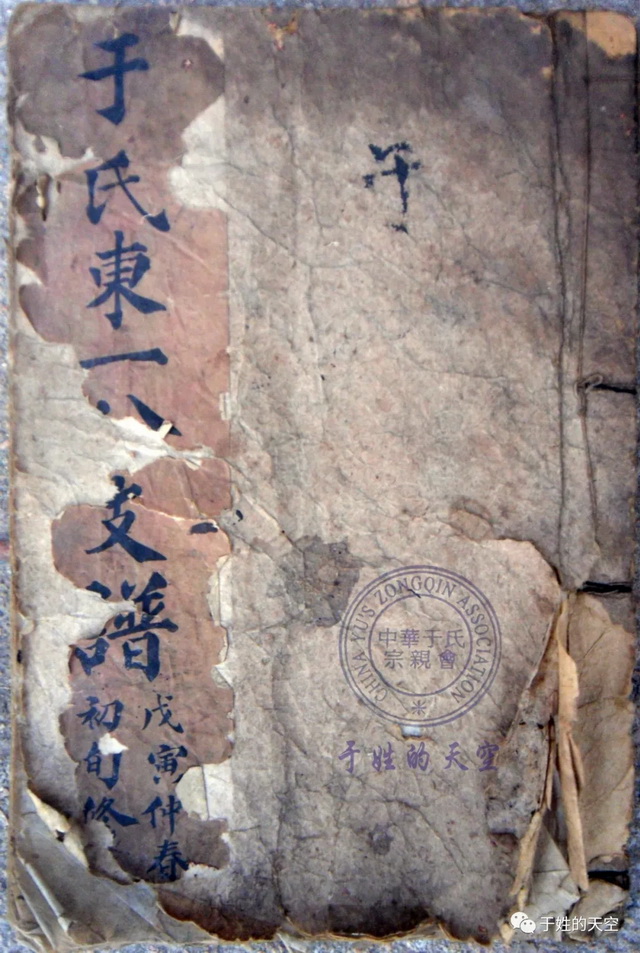 于氏東一八支譜
戊寅仲春
初旬修
午
CHINA YU'S ZONGQIN ASSOCIATION
中華于氏
宗親會
于姓的天空
于姓的天空